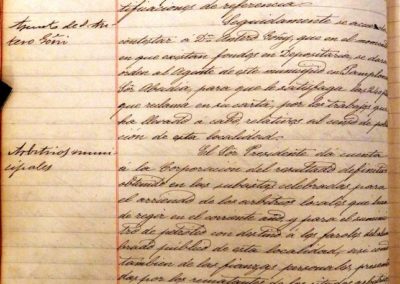 tificaciones de referencia
Asunto de D. An-
tero Goñi
Seguidamente se acuerda
contestar á D. Antero Goñy, que en el momento
en que existan fondos en Depositaria se dará
orden al Agente de este municipio en Pamplona
Sr. Abadia, para que le satisfaga las
que reclama en su carta, por los trabajos que
ha llevado á cabo relativos al censo de pobla
ción de esta localidad.
Arbitrios muni-
cipales
El Sr. Presidente da cuenta
á la Corporación del resultado definitivo
obtenido en las subastas celebradas para
el arriendo de los arbitrios locales que han
de regir en el corriente año y para el suminis
tro de petroleo con destino á los faroles del alum
brado público de esta localidad, así como
tambien de las fianzas personales presenta
das por los rematantes de los citados arbitrios